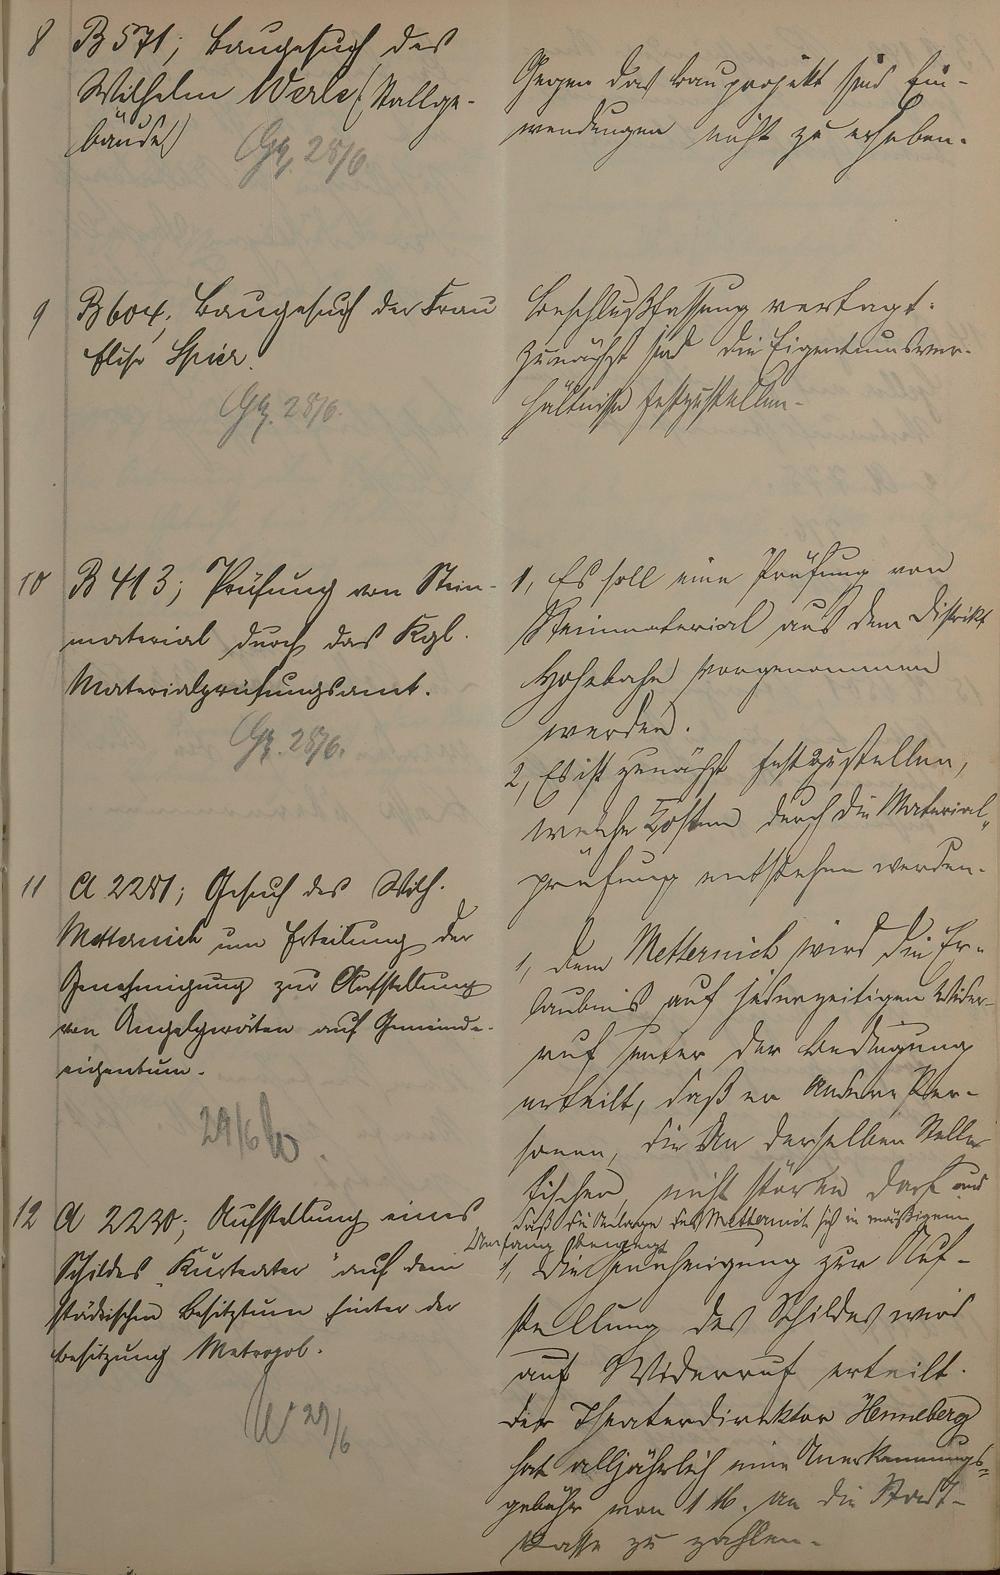 8 B 571; Baugesuch des
Wilhelm Werle (Stallge-
bäude)
28/6.
Gegen das Bauprojekt sind Ein-
wendungen nicht zu erheben.
9 B 604; Baugesuch der Frau
Elise Spier.
28/6.
Beschlußfassung vertagt.
Zunächst sind die Eigentumsver-
hältnisse festzustellen.
10 B 413; Prüfung von Stein-
material durch das Kgl.
Materialprüfungsamt.
28/6.
1, Es soll eine Prüfung von
Steinmaterial aus dem Distrikt
Hohebahn vorgenommen
werden.
2, Es ist zunächst festzustellen,
welche Kosten durch die Material-
prüfung entstehen werden.
11 A 2281; Gesuch des Wilh.
Metternich um Erteilung der
Genehmigung zur Aufstellung
von Angelgeräten auf Gemeinde-
eigentum.
29/6
1, Dem Metternich wird die Er-
laubnis auf jederzeitigen Wider-
ruf unter der Bedingung
erteilt, daß er andere Per-
sonen, die an derselben Stelle
fischen, nicht stören darf und
daß die Anlage des Metternich sich in mäßigem
Umfang bewegt
12 A 2230; Aufstellung eines
Schildes "Kurteater" auf dem
städtischen Besitztum hinter der
Besitzung Metropol.
29/6
1, Die Genehmigung zur Auf-
stellung des Schildes wird
auf Widerruf erteilt.
Der Theaterdirektor Henneberg
hat alljährlich eine Anerkennungs-
gebühr von 1 M. an die Stadt-
kasse zu zahlen.